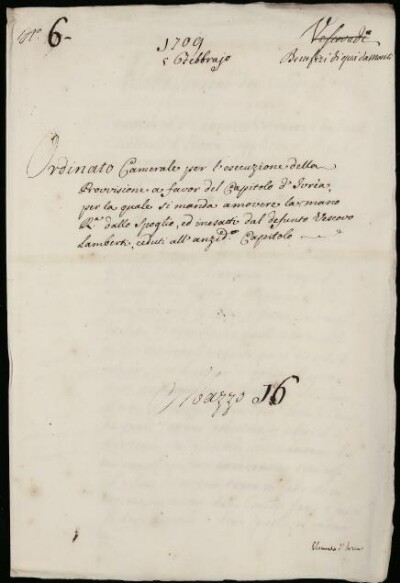 N.º 6.
1709
5 Febbrajo
Vescovadi
Benefizi di qui da monti
Ordinato Camerale per l'esecuzione della
Provvisione a favor del Capitolo d'Ivrea,
per la quale si manda amovere la mano
R.ª dallo Spoglio, ed inesatti dal defunto Vescovo
Lamberti, ceduti all'anzid.º Capitolo
Mazzo 16
d'Ivrea